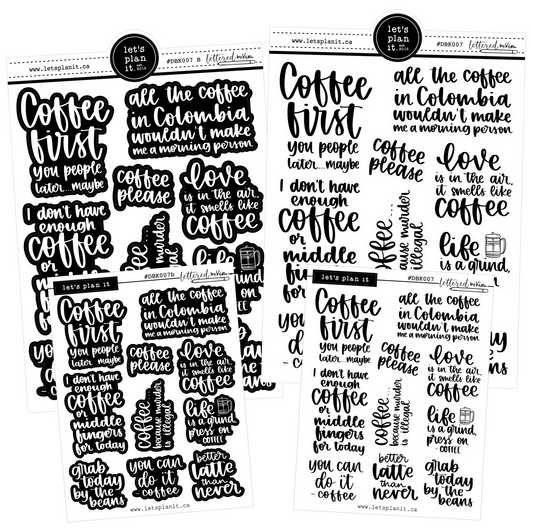 let's
plan
it.
www.letsplanit.ca
#DBK007 B
lettered by Kim
Coffee
first
you people
later...maybe
all the coffee
in Colombia
wouldn't make
me a morning person
coffee
please
love
is in the air.
it smells like
coffee
I don't have
enough
coffee
or
middle
coffee...
because murder
is illegal
you
let's
plan
it.
www.letsplanit.ca
#DBK007
lettered by Kim
Coffee
first
you people
later...maybe
all the coffee
in Colombia
wouldn't make
me a morning person
coffee
please
love
is in the air.
it smells like
coffee
I don't have
enough
coffee
or
middle
coffee...
because murder
is illegal
life
is a grind.
let's plan it
#DBK007b
lettered by Kim
Coffee
first
you people
later...maybe
all the coffee
in Colombia
wouldn't make
me a morning person
coffee
please
love
is in the air.
it smells like
coffee
I don't have
enough
coffee
or
middle
fingers
for today
coffee...
because murder
is illegal
life
is a grind
press on
-COFFEE
grab
today
by the
beans
you can
do it
-coffee
better
latte
than
never
www.letsplanit.ca
let's plan it
#DBK007
lettered by Kim
Coffee
first
you people
later...maybe
all the coffee
in Colombia
wouldn't make
me a morning person
coffee
please
love
is in the air.
it smells like
coffee
I don't have
enough
coffee
or
middle
fingers
for today
coffee...
because murder
is illegal
life
is a grind.
press on
-COFFEE
you can
do it
-coffee
better
latte
than
never
grab
today
by the
beans
www.letsplanit.ca